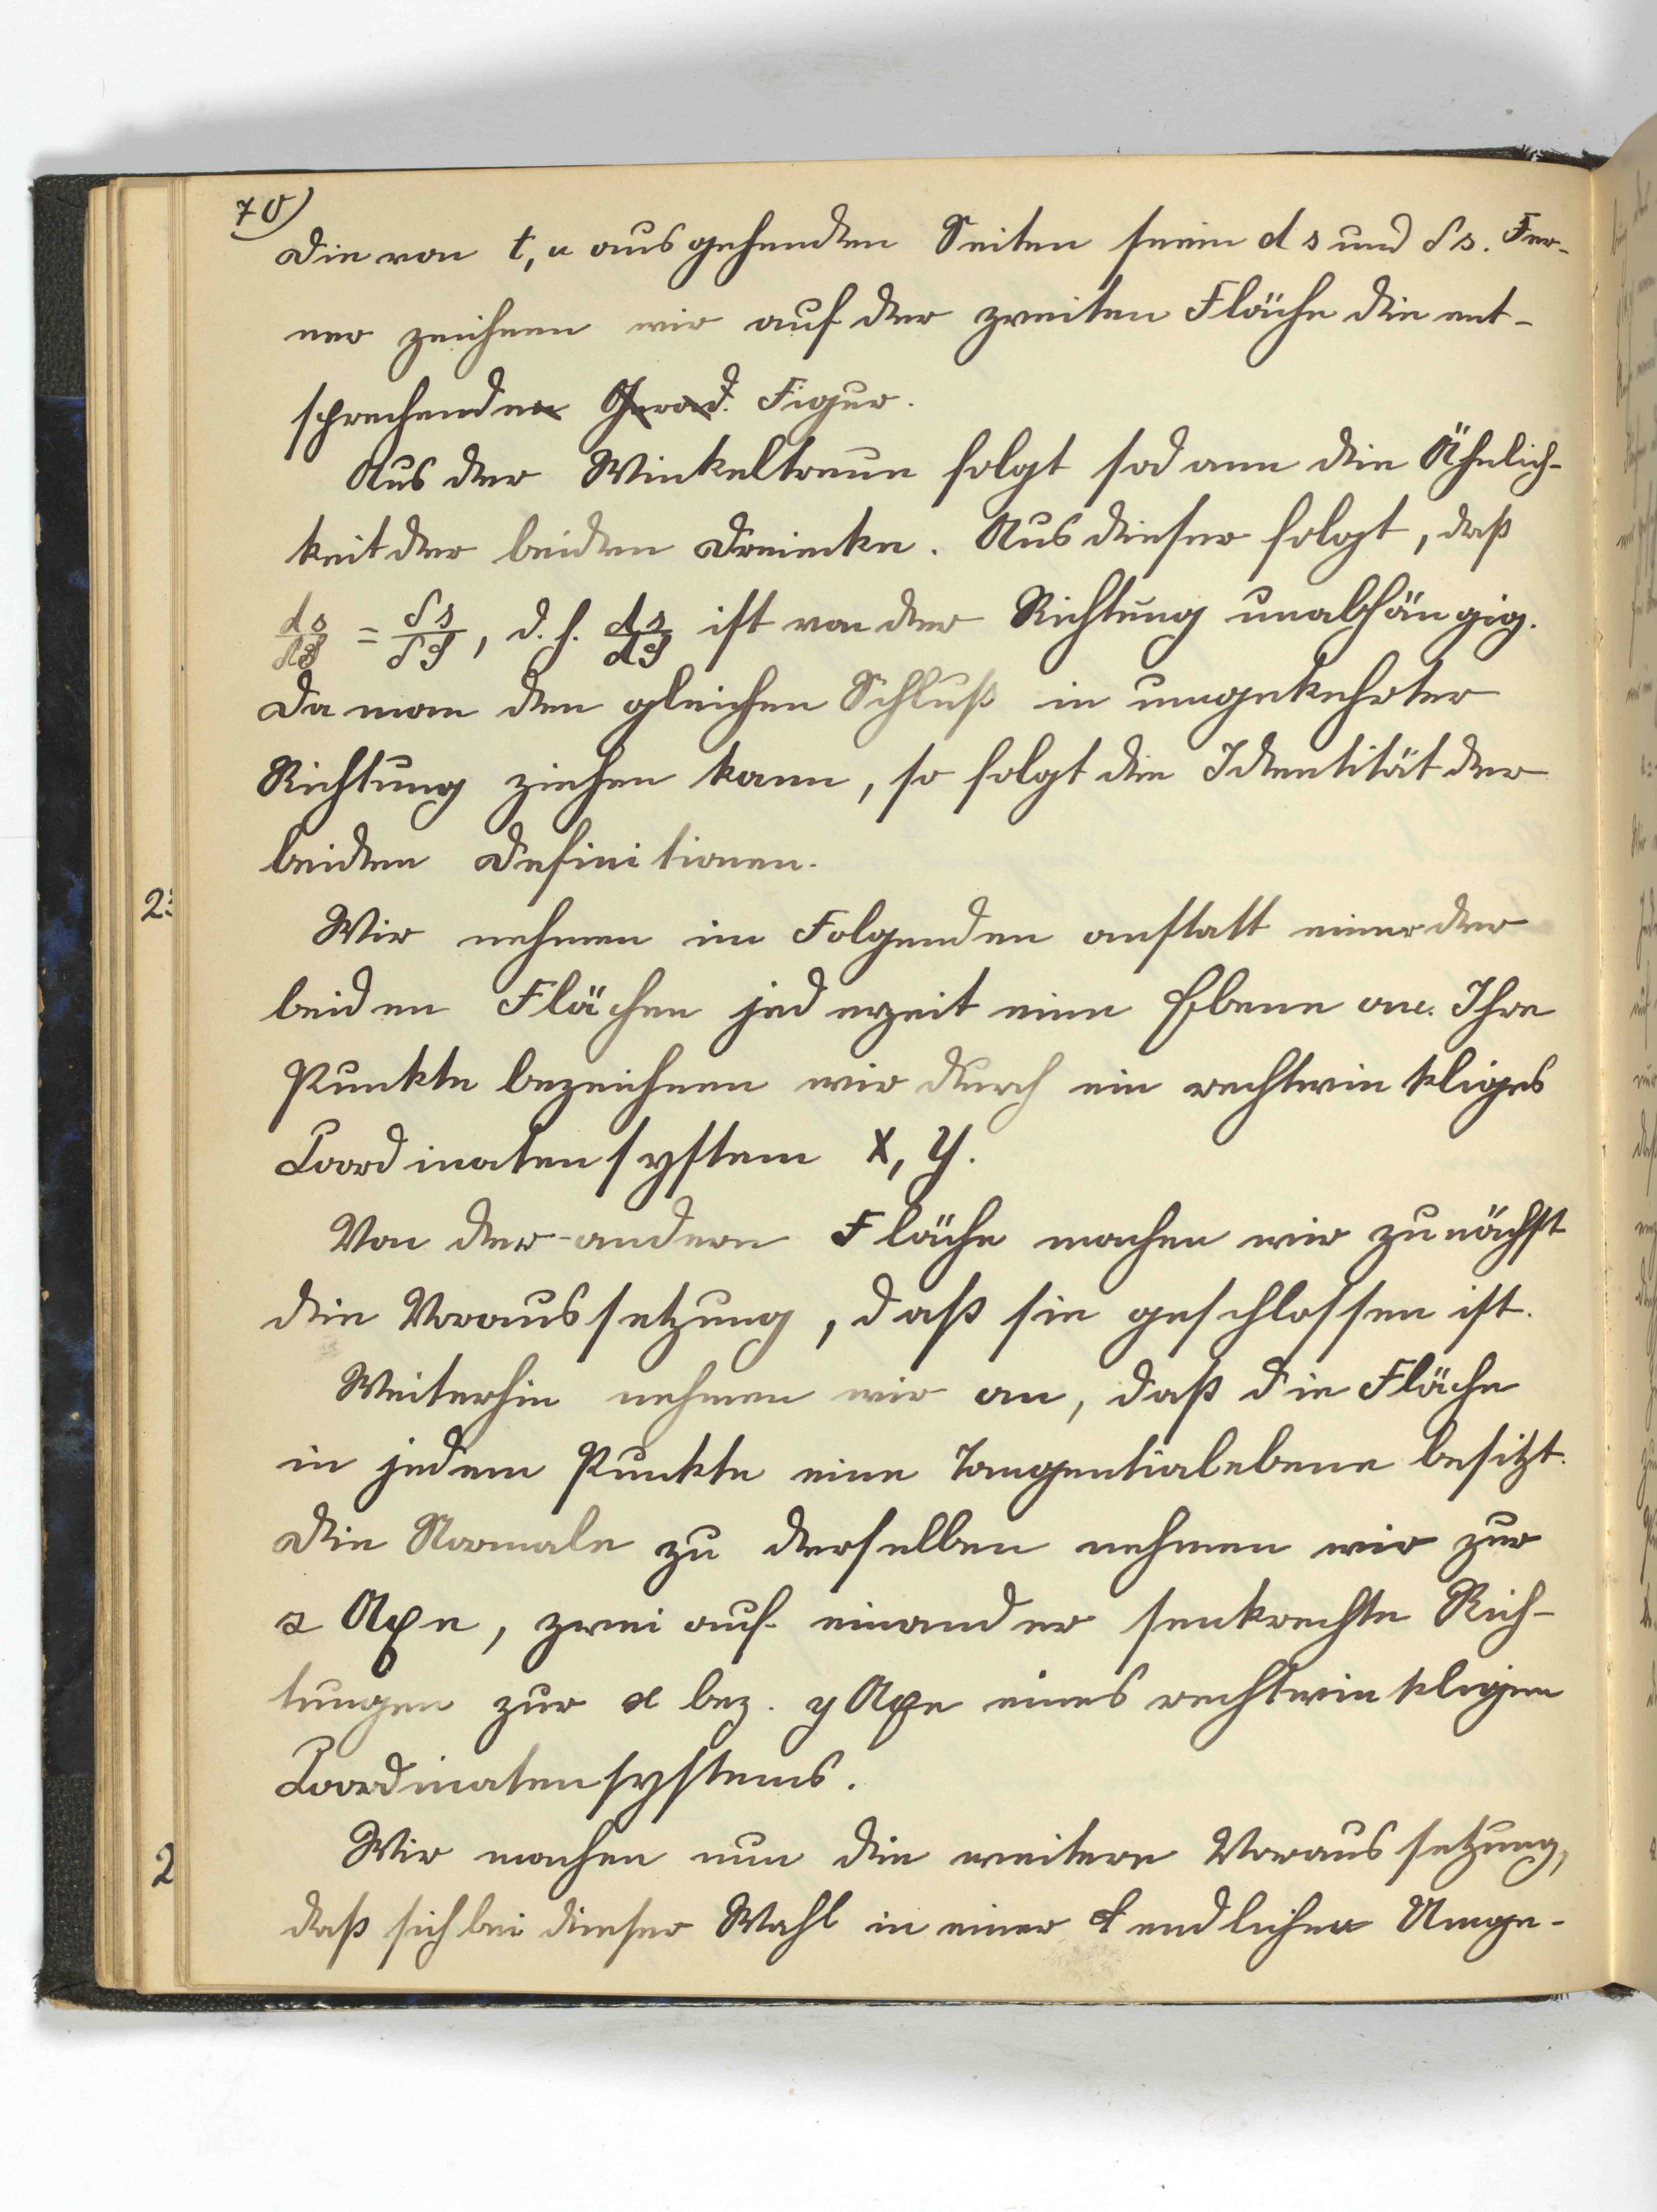 70)
Die von t, u ausgehenden Seiten seien ds und δs. Fer-
ner zeichnen wir auf der zweiten Fläche die ent-
sprechende Figur.
Aus der Winkeltreue folgt sodann die Ähnlich-
keit der beiden Dreiecke. Aus dieser folgt, daß
ds/dS = δs/δS, d. h. ds/dS ist von der Richtung unabhängig.
Da man den gleichen Schluß in umgekehrter
Richtung ziehen kann, so folgt die Identität der
beiden Definitionen.
Wir nehmen im Folgenden anstatt einer der
beiden Flächen jederzeit eine Ebene an. Ihre
Punkte bezeichnen wir durch ein rechtwinkliges
Coordinatensystem X, Y.
Von der andern Fläche machen wir zunächst
die Voraussetzung, daß sie geschlossen ist.
Weiterhin nehmen wir an, daß die Fläche
in jedem Punkte eine Tangentialebene besitzt.
Die Normale zu derselben nehmen wir zur
z Axe, zwei auf einander senkrechte Rich-
tungen zur x bez. y Axe eines rechtwinkligen
Coordinatensystems.
Wir machen nun die weitere Voraussetzung,
daß sich bei dieser Wahl in einer endlichen Umge-